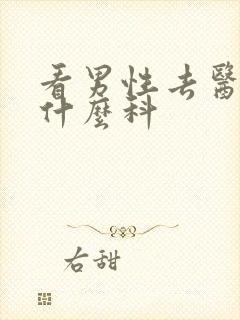 看男性去醫
什麼科
右甜